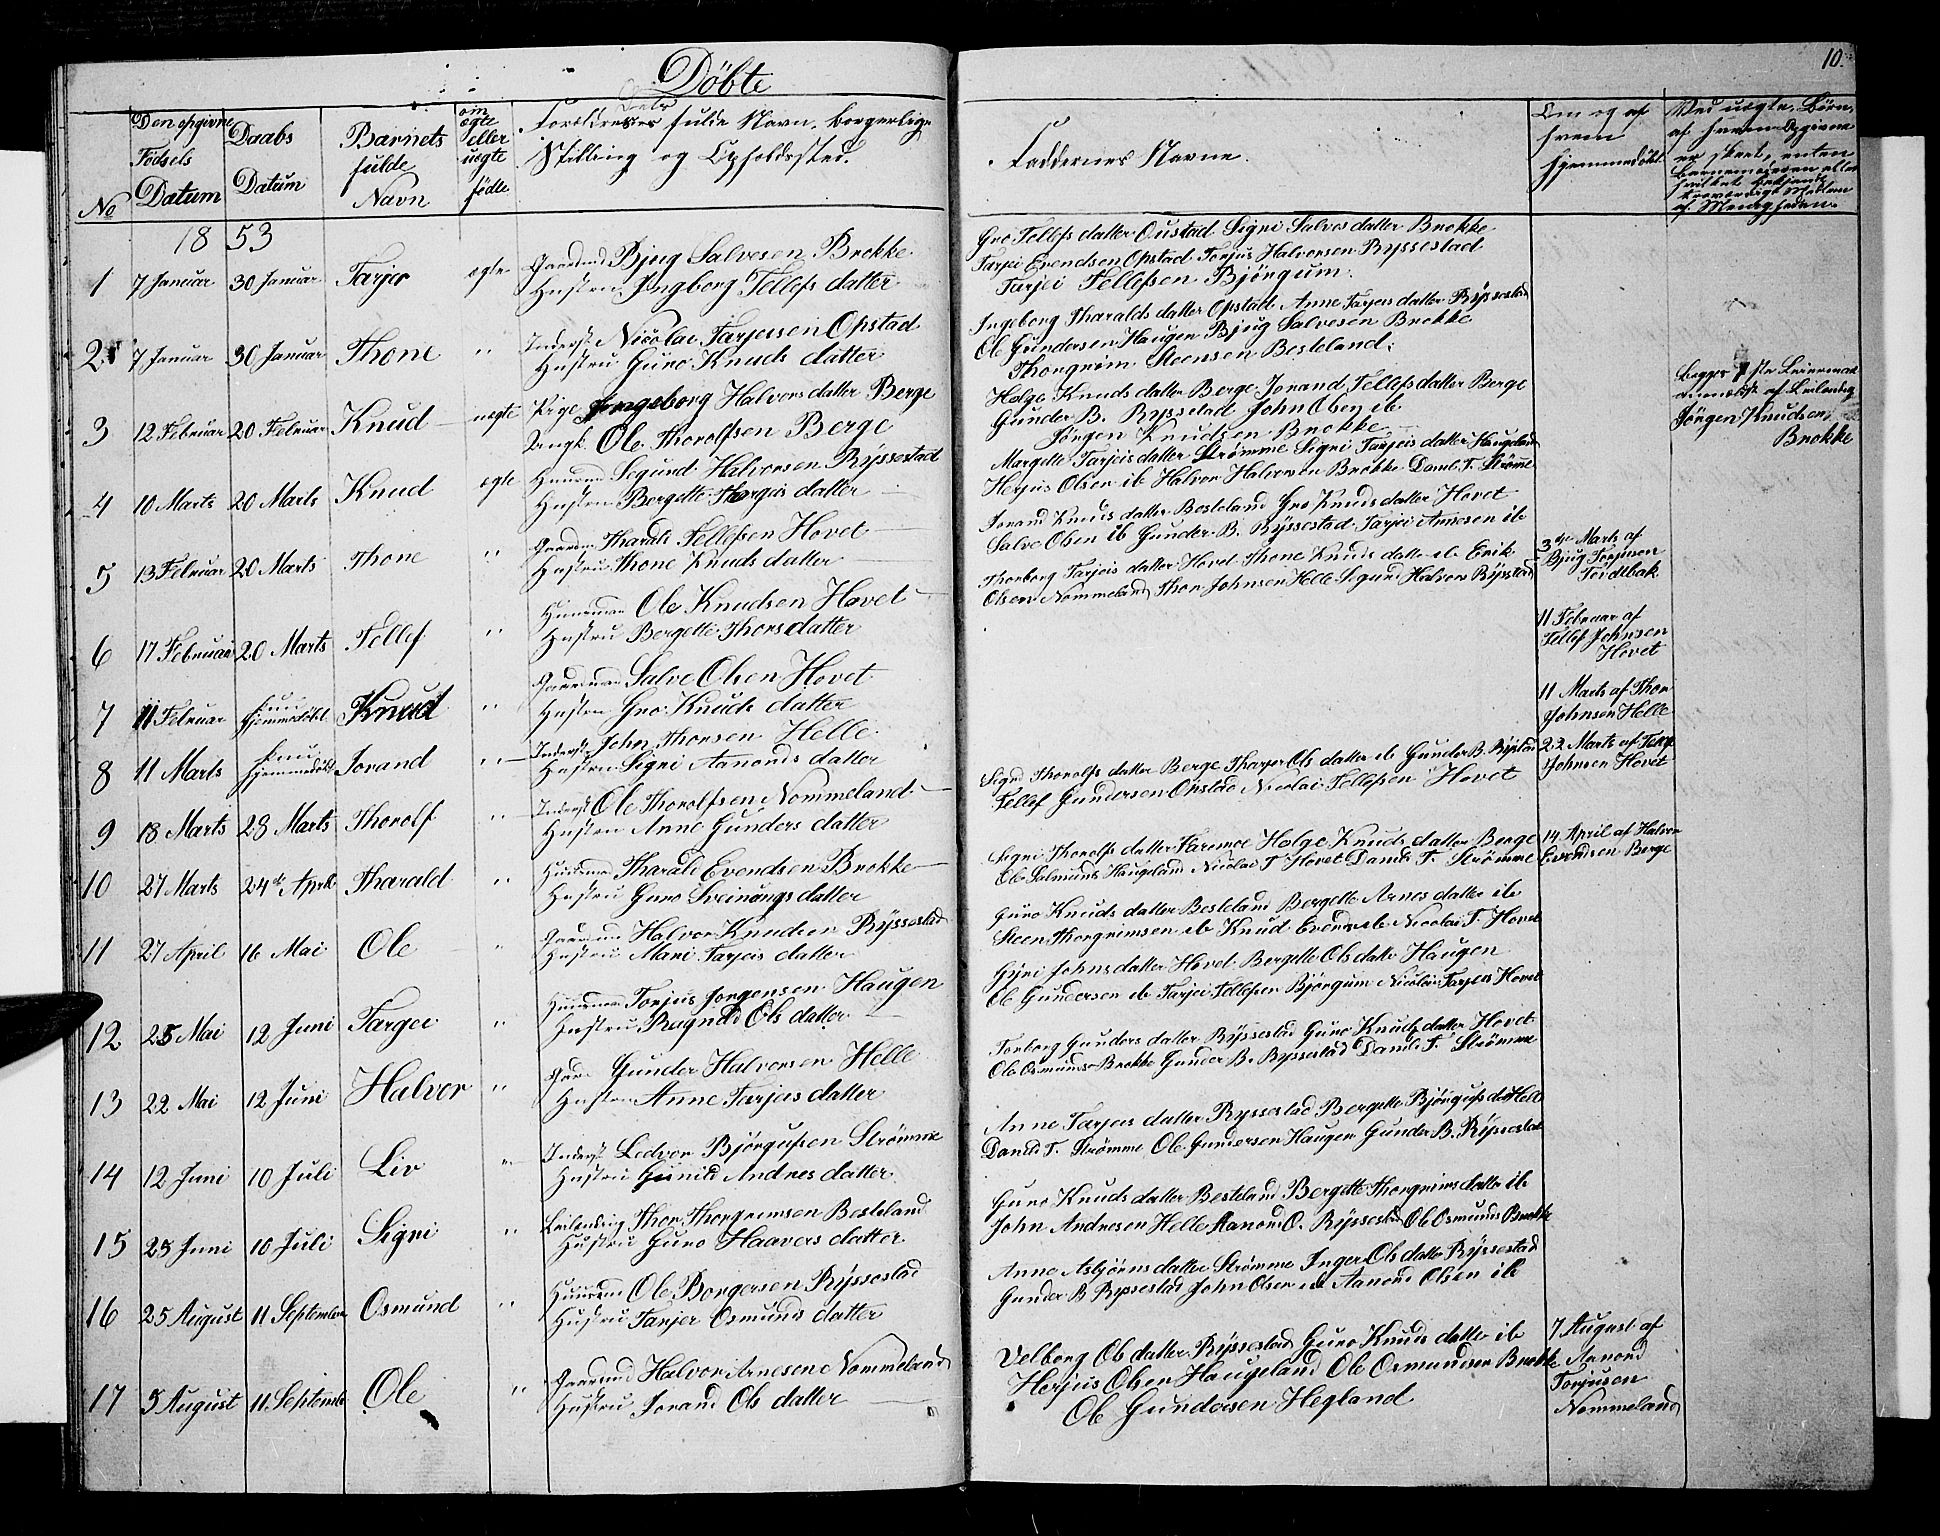 Döbte
10.
No
Den opgivne Fødsels Datum
Daabs Datum
Barnets fulde Navn
om ægte eller uægte fødte
Forældrenes fulde Navn, borgerlige
Stilling og Opholdssted.
Faddernes Navne.
Om og af hvem hjemmedøbt
Ved uægte Børn,
af hvem Opgivne
er skeet, enten
Barnemoderen eller
hvilket bekjendt
troværdigt Medlem
af Menigheden.
1853
1 7 Januar 30 Januar Tarjer ægte Gaarmd Bjug Salvesen Brokke
Hustru Ingborg Tellefs datter
Gro Tellefs datter Oustad Signi Salves datter Brokke
Tarjei Evendsen Opstad Torjus Halvorsen Ryssestad
Tarjei Tellefsen Björgum.
2 7 Januar 30 Januar Thone " Inderst Nicolai Tarjeisen Opstad
Hustru Guro Knuds datter
Ingeborg Tharalds datter Opstad Anne Tarjeis datter Ryssestad
Ole Gundersen Haugen Bjug Salvesen Brokke
Thorgrim Steensen Besteland.
3 12 Februar 20 Februar Knud uægte Pige Ingeborg Halvors datter Berge
Ungk. Ole Thorolfsen Berge
Helge Knuds datter Berge Jorand Tellefs datter Berge
Gunder B. Ryssestad John Olsen ib
Jörgen Knudsen Brokke
Begges 1ste Leiermaal
af Leilending
Jörgen Knudsen
Brokke
4 10 Marts 20 Marts Knud ægte Huusmd Segund Halvorsen Ryssestad
Hustru Bergette Torgeis datter
Margette Tarjeis datter Strømme Signi Tarjeis datter Haugeland
Herjus Olsen ib Halvor Halvorsen Brokke Danil T. Strømme
5 13 Februar 20 Marts Thone " Gaardm Tharald Tellefsen Hovet
Hustru Thone Knuds datter
Jorand Knuds datter Besteland Gro Knuds datter Hovet
Salve Olsen ib Gunder B. Ryssestad Tarjei Arnesen ib
3die Marts af
Bjug Torjusen
Tordtbak
6 17 Februar 20 Marts Tellef " Huusmand Ole Knudsen Hovet
Hustru Bergette Thorsdatter
Thorborg Tarjeis datter Hovet Thone Knuds datter ib Erik
Olsen Nommeland Thor Johnsen Helle Segund Halvors Rysstad
11 Februar af
Tellef Johnsen
Hovet
7 11 Februar kun hjemmedøbt Knud " Gaardmand Salve Olsen Hovet
Hustru Gro Knuds datter
11 Marts af Thor
Johnsen Helle
8 11 Marts kun hjemmedøbt Jorand " Inderst John Thorsen Helle
Hustru Signi Aanonds datter
22 Marts af Tellef
Johnsen Hovet
9 18 Marts 28 Marts Thorolf " Inderst Ole Thorolfsen Nommeland
Hustru Anne Gunders datter
Signi Thorolfs datter Berge Tharjer Ols datter ib Gunder B. Rysstad
Tellef Gundersen Opstad Nicolai Tellefsen Hovet
10 27 Marts 24de April Tharald " Huusman Tharald Evendsen Brokke
Hustru Guro Sveinungs datter
Signi Thorolfs datter Faremoe Helge Knuds datter Berge
Ole Salmunds Haugeland Nicolai T Hovet Danil T. Strømme
14 April af Halvor
Evendsen Berge
11 27 April 16 Mai Ole " Gaarmd Halvor Knudsen Ryssestad
Hustru Mari Tarjeis datter
Guro Knuds datter Besteland Bergette Arnes datter ib
Steen Thorgrimsen ib Knud Evends ib Nicolai T. Hovet
12 25 Mai 12 Juni Targei " Huusman Torjus Jorgensen Haugen
Hustru Ragnild Ols datter
Gyri Johns datter Hovet Bergette Ols datter Haugen
Ole Gundersen ib Tarjei Tellefsen Björgum Nicolai Tarjeis Hovet
13 22 Mai 12 Juni Halvor " Gunder Halvorsen Helle
Hustru Anne Tarjeis datter
Torborg Gunders datter Ryssestad Guro Knuds datter Hovet
Ole Osmunds Brokke Gunder B. Ryssestad Danil T. Strømme
14 12 Juni 10 Juli Liv " Inderst Ledvor Björgufsen Strømme
Hustru Gunild Andres datter
Anne Tarjeis datter Ryssestad Bergette Bjørgufs dat Helle
Danild T. Strømme Ole Gundersen Haugen Gunder B. Ryssestad
15 25 Juni 10 Juli Signi " Leilending Thor Thorgrimsen Besteland
Hustru Guro Haavers datter
Guro Knuds datter Besteland Bergette Thorgrims datter ib
John Andresen Helle Aanond O. Ryssestad Ole Osmunds Brokke
16 25 August 11 September Osmund " Huusmd Ole Borgersen Ryssestad
Hustru Tarjer Osmunds datter
Anne Asbjørns datter Strømme Inger Ols datter Ryssestad
Gunder B Ryssestad John Olsen ib Aanond Olsen ib
17 5 August 11 Septembr Ole " Gaarmd Halvor Arnesen Nommeland
Hustru Jorand Ols datter
Velborg Ols datter Ryssestad Guro Knuds datter ib
Herjus Olsen Haugeland Ole Osmundsen Brokke
Ole Gundersen Hegland
7 August af
Aanond
Torjusen
Nommeland